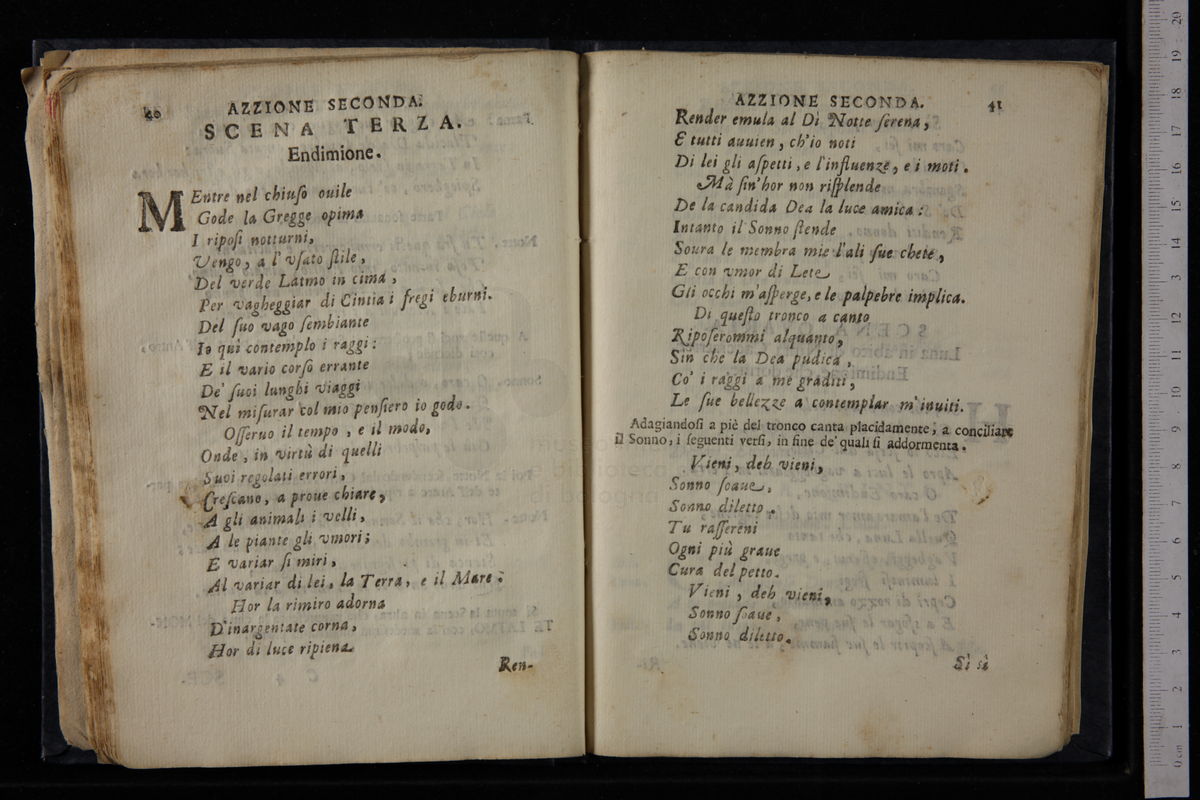 40 AZZIONE SECONDA.
SCENA TERZA.
Endimione.
MEntre nel chiuſo ouile
Gode la Gregge opima
I ripoſi notturni,
Vengo, a l'vſato ſtile,
Del verde Latmo in cima,
Per vagheggiar di Cintia i fregi eburni.
Del ſuo vago ſembiante
Io quì contemplo i raggi:
E il vario corſo errante
De' ſuoi lunghi viaggi
Nel miſurar col mio penſiero io godo.
Oſſeruo il tempo, e il modo,
Onde, in virtù di quelli
Suoi regolati errori,
Creſcano, a proue chiare,
A gli animali i velli,
A le piante gli vmori;
E variar ſi miri,
Al variar di lei, la Terra, e il Mare:
Hor la rimiro adorna
D'inargentate corna,
Hor di luce ripiena
Ren-
AZZIONE SECONDA. 41
Render emula al Dì Notte ſerena,
E tutti auuien, ch'io noti
Di lei gli aſpetti, e l'influenze, e i moti.
Mà ſin'hor non riſplende
De la candida Dea la luce amica:
Intanto il Sonno ſtende
Soura le membra mie l'ali ſue chete,
E con vmor di Lete
Gli occhi m'aſperge, e le palpebre implica.
Di queſto tronco a canto
Ripoſerommi alquanto,
Sin che la Dea pudica,
Co' i raggi a me graditi,
Le ſue bellezze a contemplar m'inuiti.
Adagiandoſi a piè del tronco canta placidamente, a conciliare
il Sonno, i ſeguenti verſi, in fine de' quali ſi addormenta.
Vieni, deh vieni,
Sonno ſoaue,
Sonno diletto.
Tu raſſereni
Ogni più graue
Cura del petto.
Vieni, deh vieni,
Sonno ſoaue,
Sonno diletto.
Sì sì